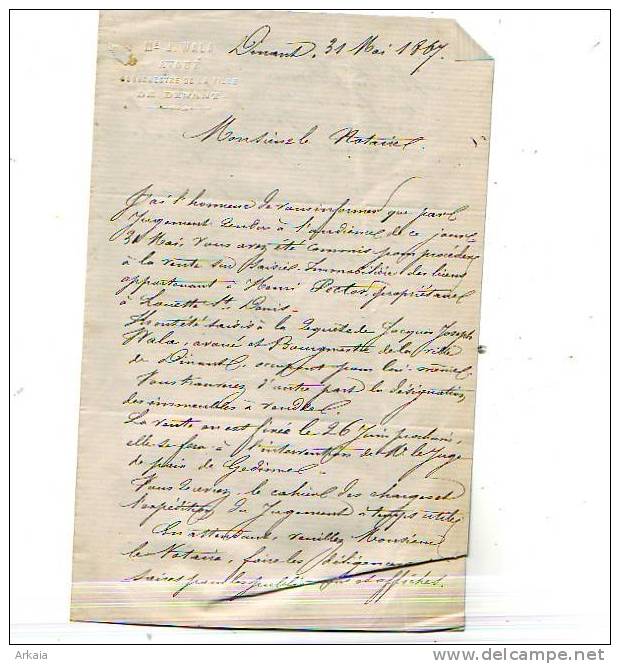 Me J. WALA
AVOUÉ
BOURGMESTRE DE LA VILLE
DE DINANT
Dinant, 31 Mai 1867.
Monsieur le Notaire.
J'ai l'honneur de vous informer que par le
Jugement rendu à l'audience de ce jour
31 Mai, vous avez été commis pour procéder
à la vente sur Saisie Immobilière des biens
appartenant à Henri Poctor, propriétaire
à Louette St Denis.
Ils ont été saisis à la requête de Jacques Joseph
Wala, avoué et Bourgmestre de la ville
de Dinant, occupant pour lui même.
Vous trouverez d'autre part la désignation
des immeubles à vendre.
La vente en est fixée le 26 Juin prochain,
elle se fera à l'intervention de Mr le Juge
de paix de Gedinne.
Vous recevrez le cahier des charges et
l'expédition du Jugement à temps utile
En attendant, veuillez Monsieur
le Notaire, faire les diligences
pour les et affiches.
Arkaia
www.delcampe.net